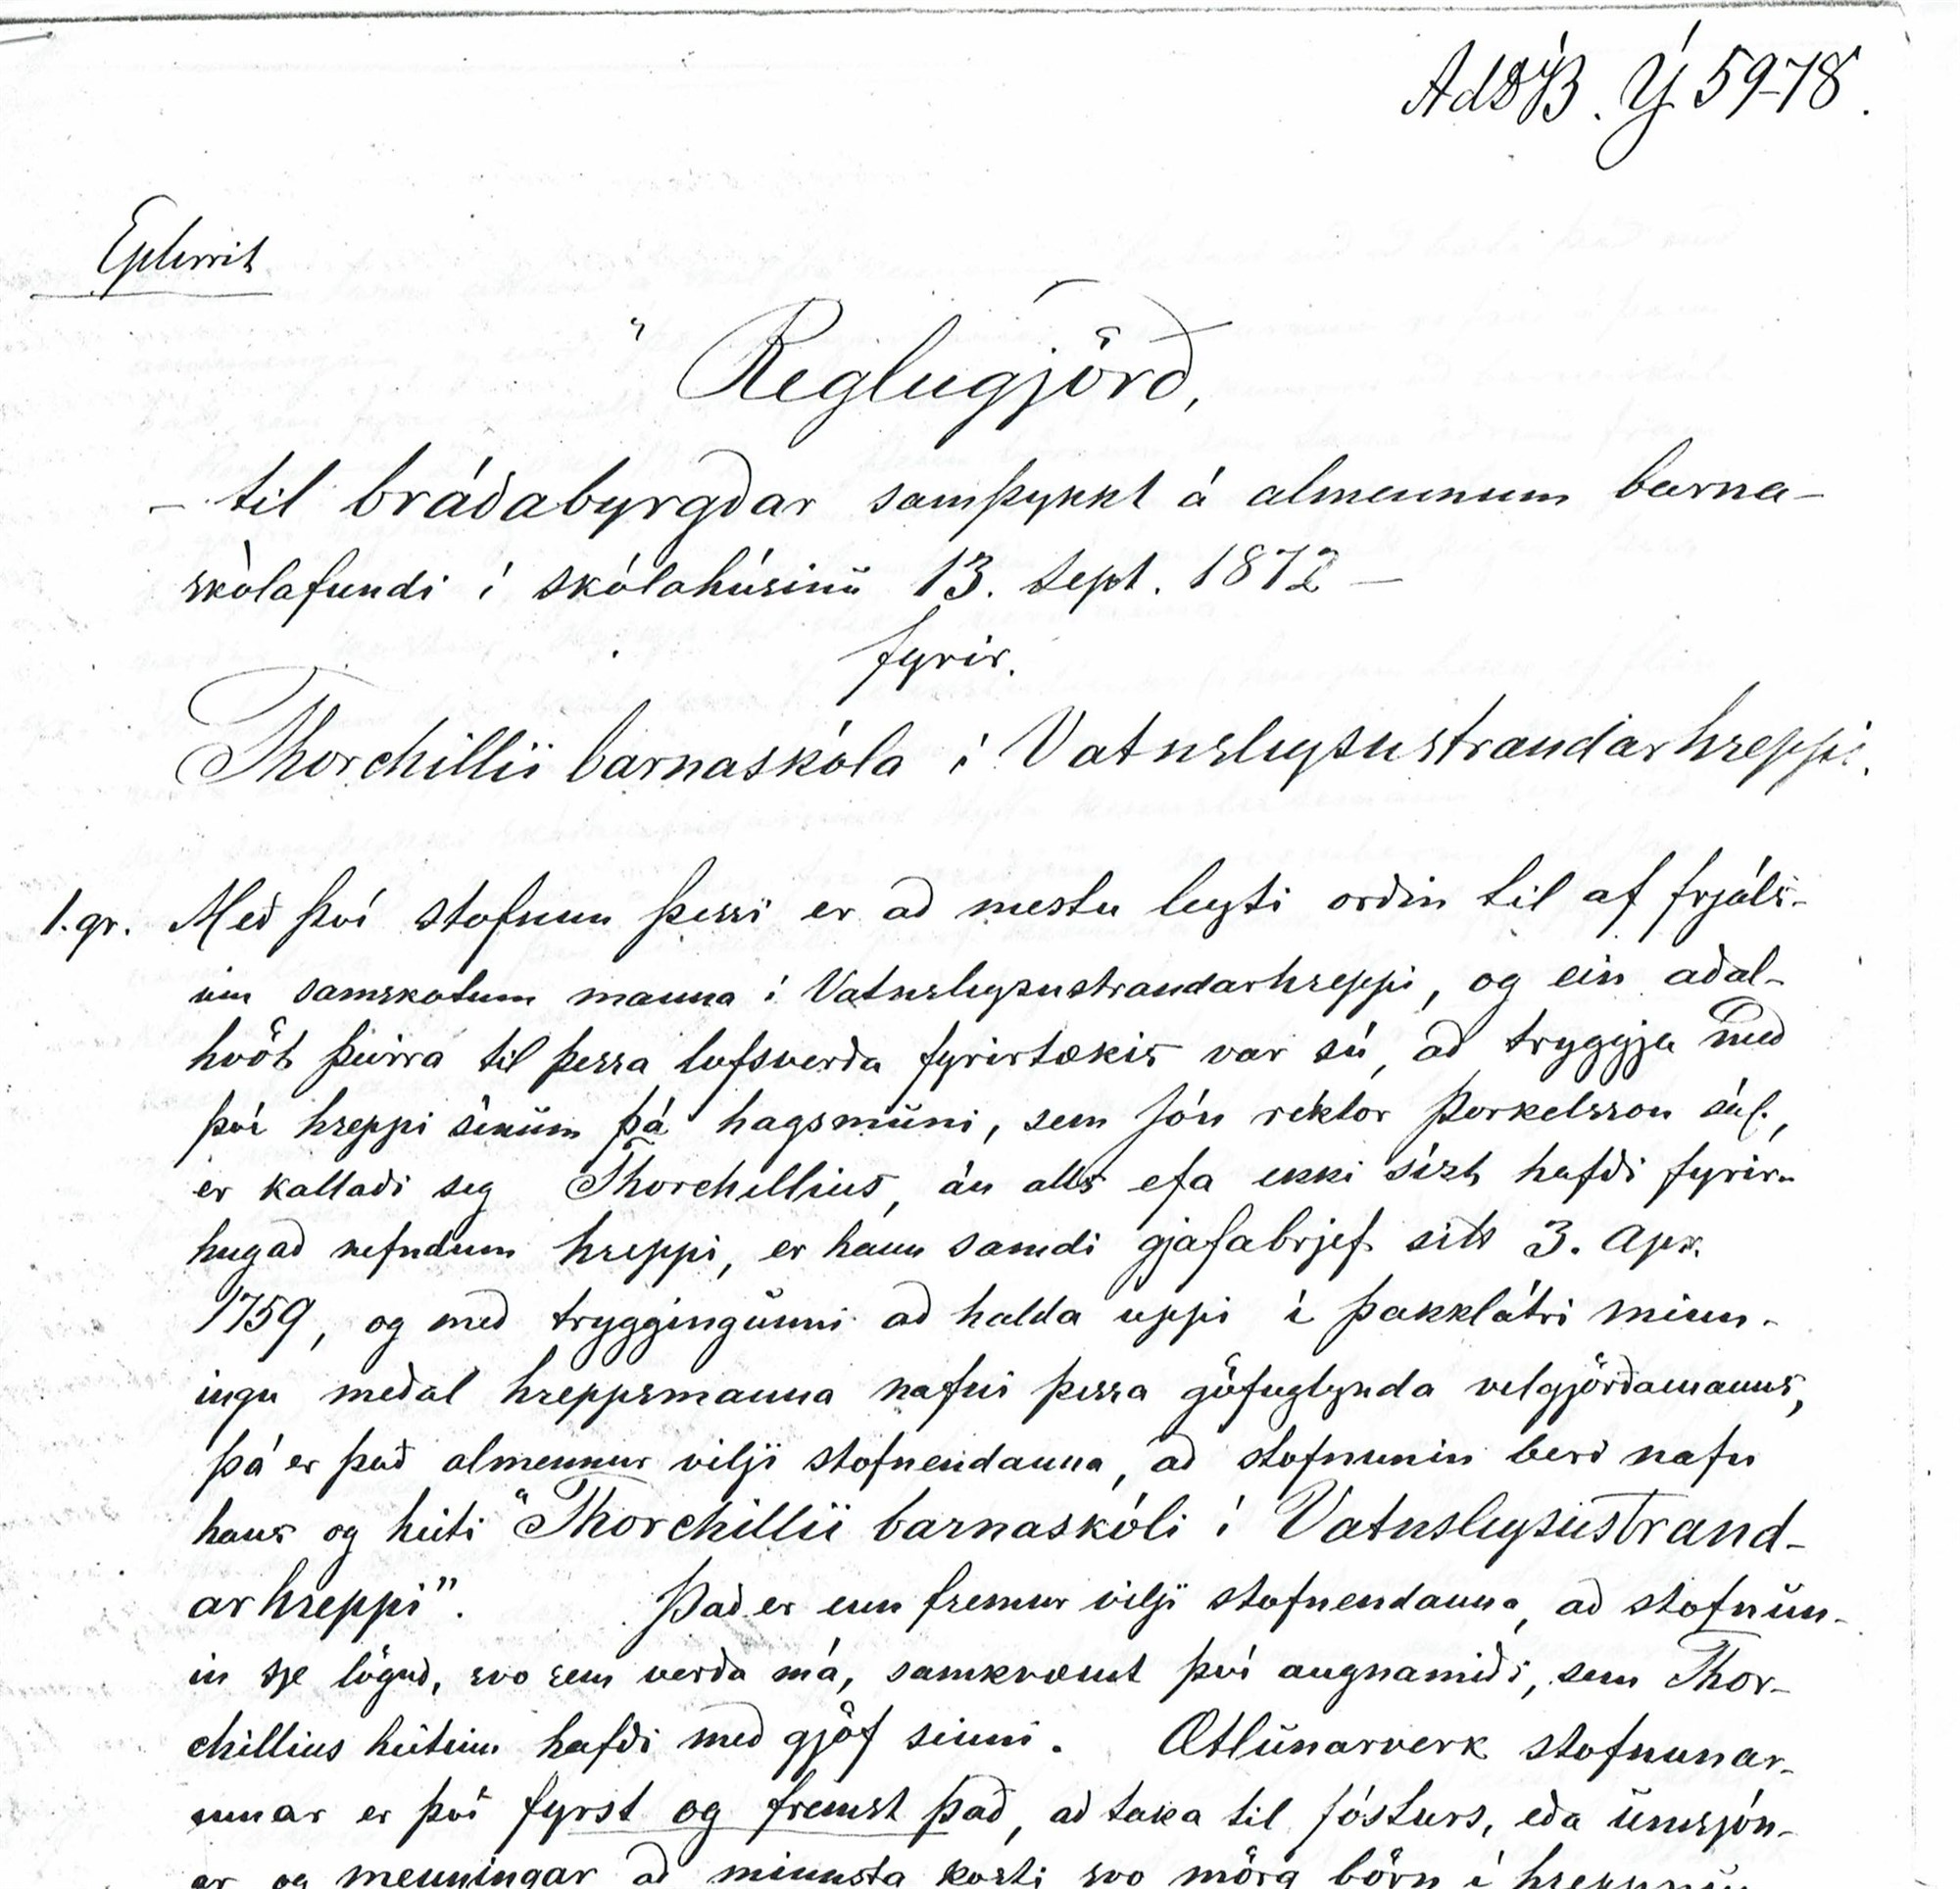 Ý 59-78.
Eptirrit
"Reglugjörð,
- til bráðabyrgðar samþykkt á almennum barna-
skólafundi í skólahúsinu 13. sept. 1872 -
fyrir.
Thorchillii barnaskóla í Vatnsleysustrandarhreppi.
1. gr. Með því stofnun þessi er að mestu leyti orðin til af frjáls-
um samskotum manna í Vatnsleysustrandarhreppi, og ein aðal-
hvöt þeirra til þessa lofsverða fyrirtækis var sú, að tryggja með
því hreppi sínum þá hagsmuni, sem Jón rektor Þorkelsson sál.,
er kallaði sig Thorchillius, án alls efa ekki sízt hafði fyrir-
hugað nefndum hreppi, er hann samdi gjafabrjef sitt 3. Apr.
1759, og með tryggingunni að halda uppi í þakklátri minn-
ingu meðal hreppsmanna nafni þessa göfuglynda velgjörðamanns,
þá er það almennur vilji stofnendanna, að stofnunin beri nafn
hans og heiti "Thorchillii barnaskóli í Vatnsleysustrand-
arhreppi". Það er enn fremur vilji stofnendanna, að stofnun-
in sje löguð, svo sem verða má, samkvæmt því augnamiði, sem Thor-
chillius heitinn hafði með gjöf sinni. Ætlunarverk stofnunar-
innar er því fyrst og fremst það, að taka til fósturs, eða umsjón-
ar og menningar að minnsta kosti svo mörg börn í hreppnum